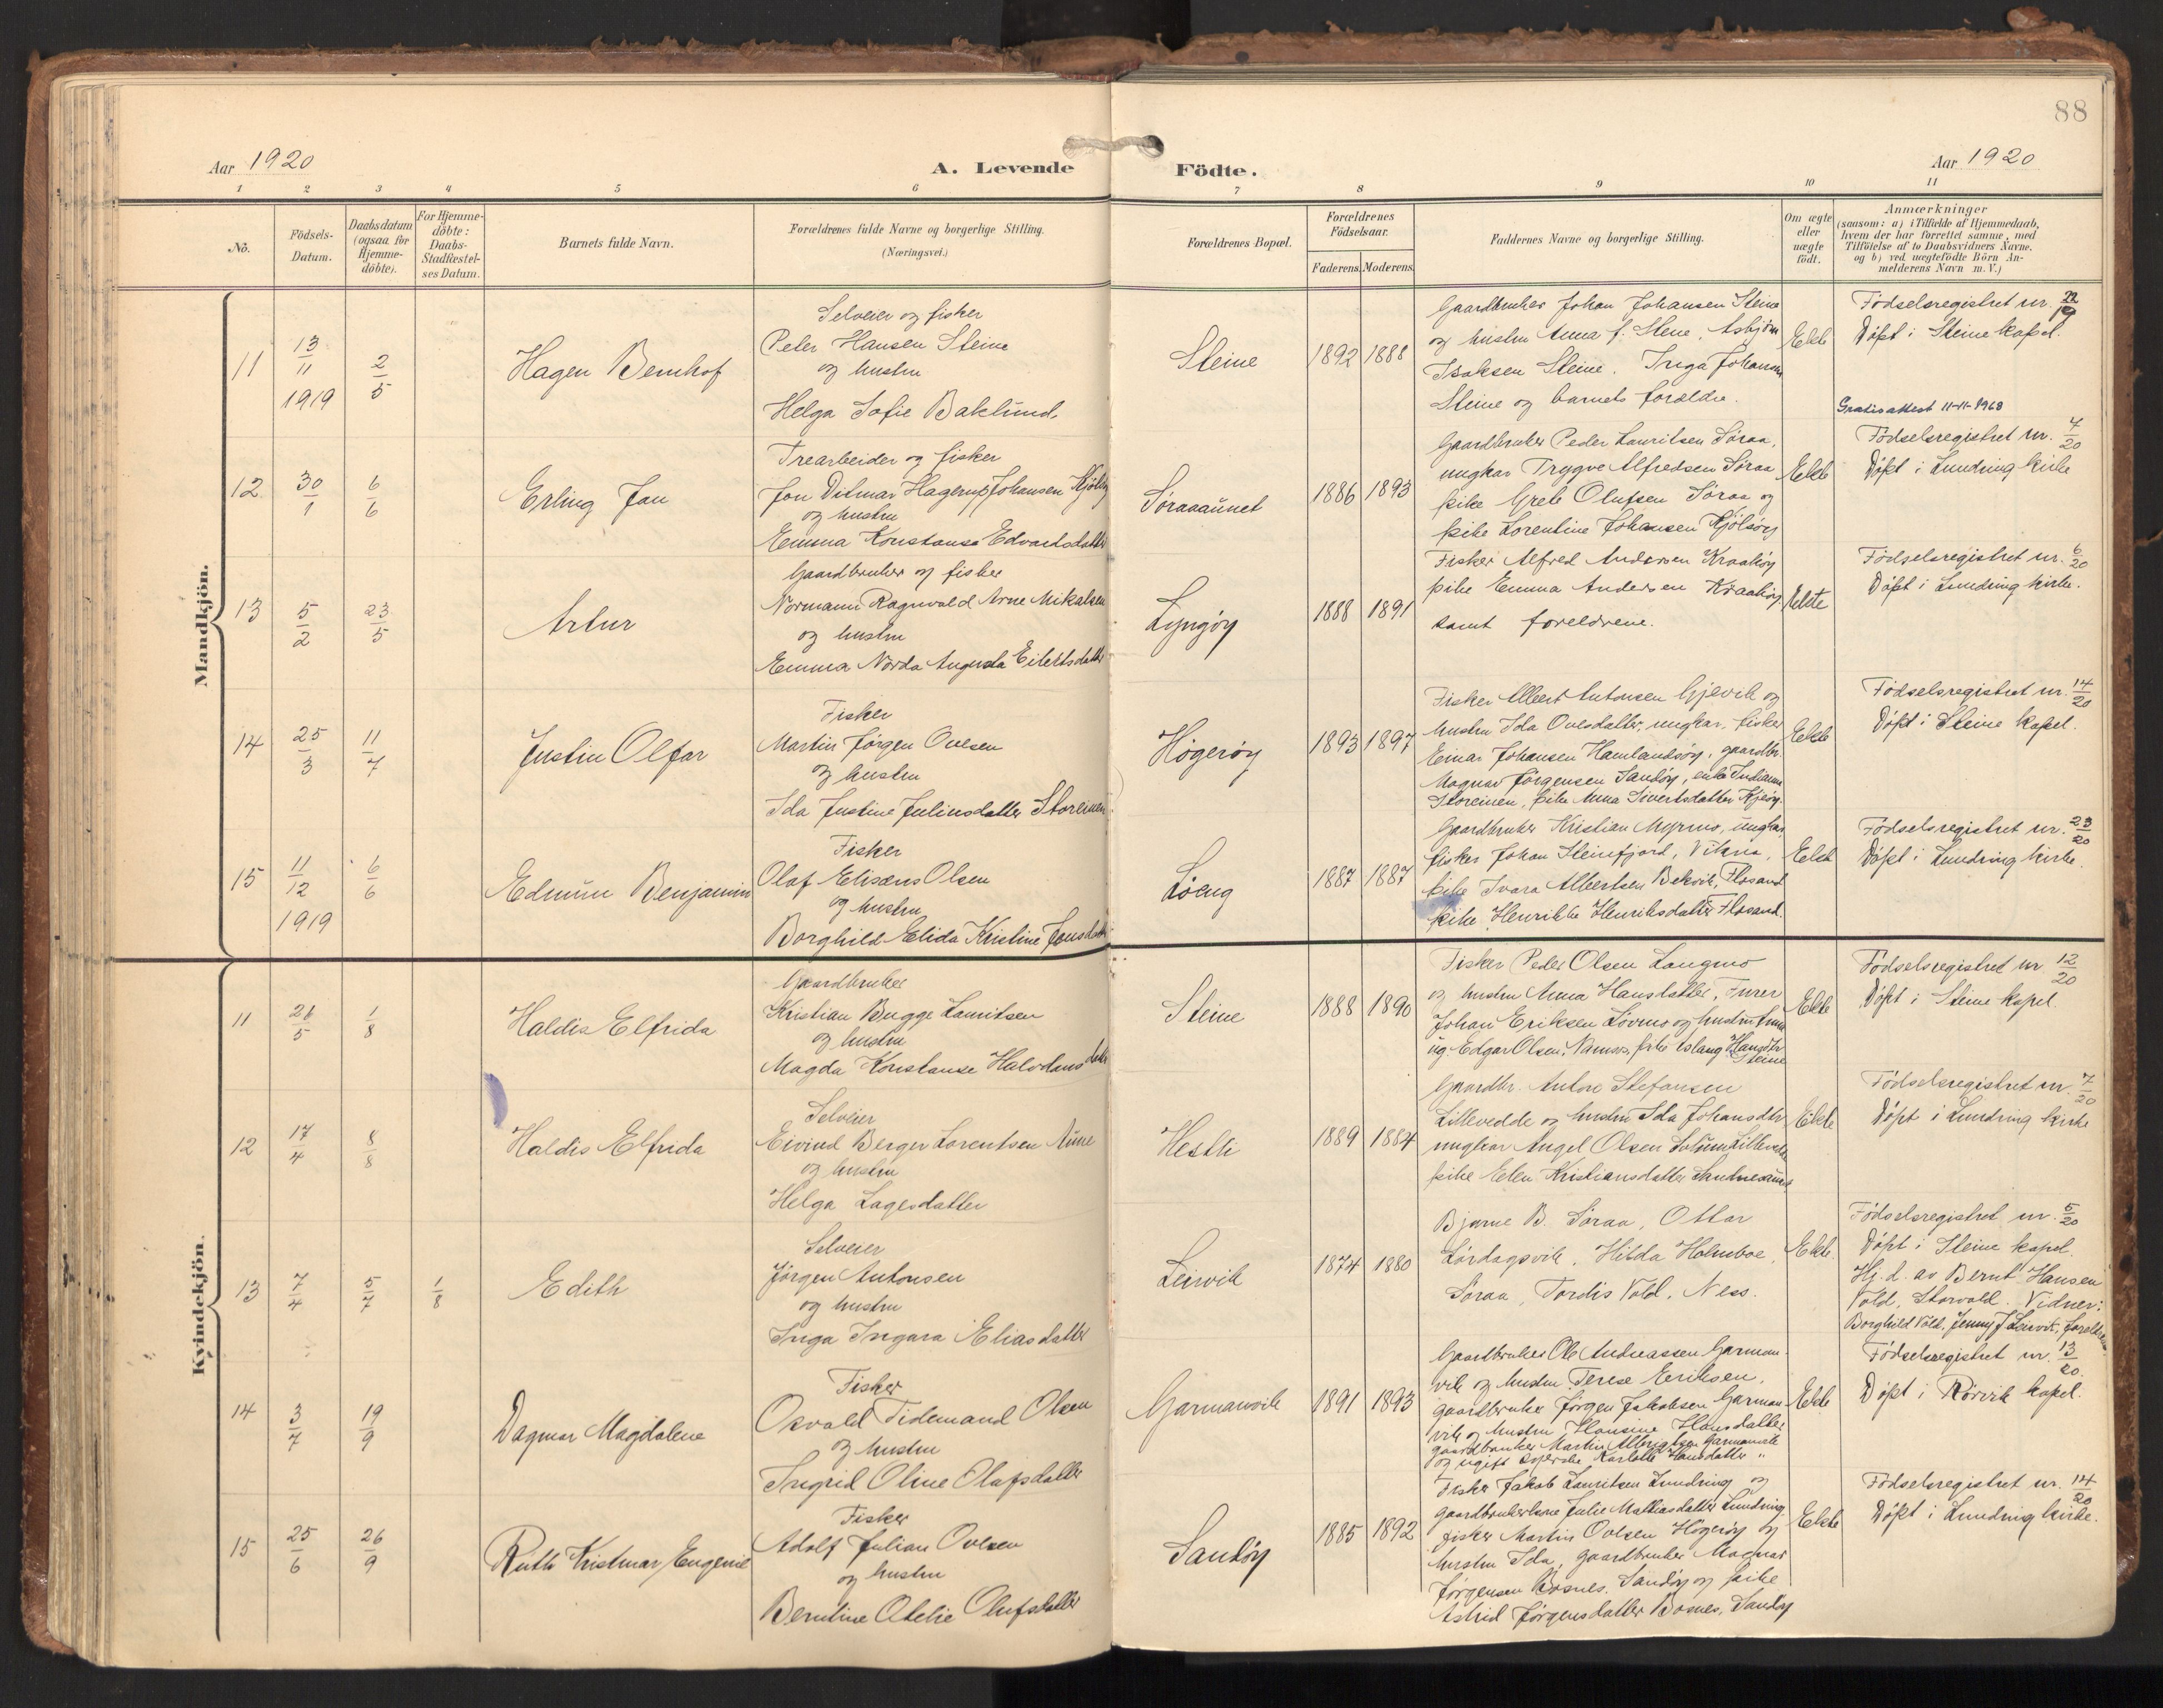 88
Aar 1920
A. Levende Födte.
Aar 1920
1 2 3 4 5 6 7 8 9 10 11
Nö.
Födsels-
Datum.
Daabsdatum
(ogsaa for
Hjemme-
döbte).
For Hjemme-
döbte:
Daabs-
Stadfæstel-
ses Datum.
Barnets fulde Navn.
Forældrenes fulde Navne og borgerlige Stilling.
(Næringsvei.)
Forældrenes Bopæl.
Forældrenes
Födselsaar.
Faderens. Moderens.
Faddernes Navne og borgerlige Stilling.
Om ægte
eller
uægte
födt.
Anmærkninger
(saasom: a) i Tilfælde af Hjemmedaab,
hvem der har forrettet samme, med
Tilföielse af to Daabsvidners Navne,
og b) ved uægtefödte Börn An-
melderens Navn m. V.)
Mandkjön.
11
13/11
1919
2/5
Hagen Bernhof
Selveier og fisker
Peter Hansen Steine
og hustru
Helga Sofie Baklund.
Steine
1892 1888
Gaardbruker Johan Johansen Steine
og hustru Anna J. Stene, Asbjørn
Isaksen Steine. Inga Johansen
Steine og barnets forældre.
Ekte
Fødselsregistret nr. 22/19
Døpt i Steine kapel.
Gratisattest 11-11-1968
12
30/1
6/6
Erling Jan
Trearbeider og fisker
Jon Ditmar Hagerup Johansen Kjölsöy
og hustru
Emma Konstanse Edvardsdatter
Søraaaunet
1886 1893
Gaardbruker Peder Lauritsen Søraa,
ungkar Trygve Alfredsen Søraa
pike Grete Olufsen Søraa og
pike Lorentine Johansen Kjölsöy
Ekte
Fødselsregistret nr. 4/20
Døpt i Lundring kirke
13
5/2
23/5
Artur
Gaardbruker og fisker
Normann Ragnvald Arne Mikalsen
og hustru
Emma Norda Augusta Eilertsdatter
Lyngöy
1888 1891
Fisker Alfred Andersen Kraaköy
pike Emma Andersen Kraaköy
samt foreldrene.
Ekte
Fødselsregistret nr. 6/20
Døpt i Lundring kirke.
14
25/3
11/7
Justin Olfar
Fisker
Martin Jørgen Ovesen
og hustru
Ida Justine Juliusdatter Storeinen
Högeröy
1893 1897
Fisker Albert Antonsen Gjevik og
hustru Ida Ovesdatter, ungkar, fisker
Einar Johansen Hamlandsöy, gaardbr.
Magnar Jørgensen Sandöy, enke Indianna
Storeinen, pike Anna Sivertsdatter Kjeöy.
Ekte
Fødselsregistret nr. 14/20
Døpt i Steine kapel.
15
11/12
1919
6/6
Edmun Benjamin
Fisker
Olaf Eliseus Olsen
og hustru
Borghild Elida Kristine Jensdatter
Löeng
1887 1887
Gaardbruker Kristian Myrmo, ungkar
fisker Johan Steinfjord, Vikna,
pike Ivara Albertsen Bekvik, Flosand
pike Henrikke Henriksdatter Flosand.
Ekte
Fødselsregistret nr. 23/20
Døpt i Lundring kirke.
Kvindekjön.
11
26/5
1/8
Haldis Elfrida
Gaardbruker
Kristian Bugge Lauritsen
og hustru
Magda Konstanse Halvdansdatter
Steine
1888 1890
Fisker Peder Olsen Langmo
og hustru Anna Hansdatter, Furer
Johan Eriksen Lövmo og hustru Anna
ug. Edgar Olsen, Namsos, pike Aslaug Hansdtr
Steine
Ekte
Fødselsregistret nr 12/20
Døpt i Steine kapel
12
17/4
8/8
Haldis Elfrida
Selveier
Eivind Berger Lorentsen Aune
og hustru
Helga Lagesdatter
Hestli
1889 1884
Gaardbr. Anton Stefansen
Lillevedde og hustru Ida Johansdtr
ungkar Angel Olsen Solum Lillevedde
pike Elen Kristiansdatter Sandnesaunet
Ekte
Fødselsregistret nr. 7/20
Døpt i Lundring kirke
13
7/4
5/7
1/8
Edith
Selveier
Jörgen Antonsen
og hustru
Inga Ingara Eliasdatter
Leirvik
1874 1880
Bjarne B. Söraa, Ottar
Lördagsvik, Hilda Holmboe,
Söraa, Tordis Vold, Ness.
Ekte.
Fødselsregistret nr. 5/20
Døpt i Steine kapel.
Hj.d. av Bernt Hansen
Vold, Storvold. Vidner:
Borghild Vold, Jenny J Leirvik, foreldrene.
14
3/7
19/9
Dagmar Magdalene
Fisker
Osvald Tidemand Olsen
og hustru
Ingrid Oline Olafsdatter
Garmanvik
1891 1893
Gaardbruker Ole Andreassen Garman-
vik og hustru Terese Eeriksen,
gaardbruker Jörgen Jakobsen Garman
vik og hustru Hansine Hansdatter
gaardbruker Martin Albrigtsen Garmanvik
og ugift syerske Karlotte Hansdatter "
Ekte
Fødselsregistret nr. 13/20.
Døpt i Rörvik kapel.
15
25/6
26/9
Ruth Kristmar Eugenie
Fisker
Adolf Julian Ovesen
og hustru
Berntine Otelie Olufsdatter
Sandöy
1885 1892
Fisker Jakob Lauritsen Lundring og
gaardbrukerkone Julie Mathiasdatter Lundring,
fisker Martin Ovesen Högeröy og
hustru Ida, gaardbruker Magnar
Jørgensen Bosnes, Sandöy og pike
Astrid Jørgensdatter Bosnes, Sandöy
Ekte
Fødselsregistret nr. 14/20
Døpt i Lundring kirke.